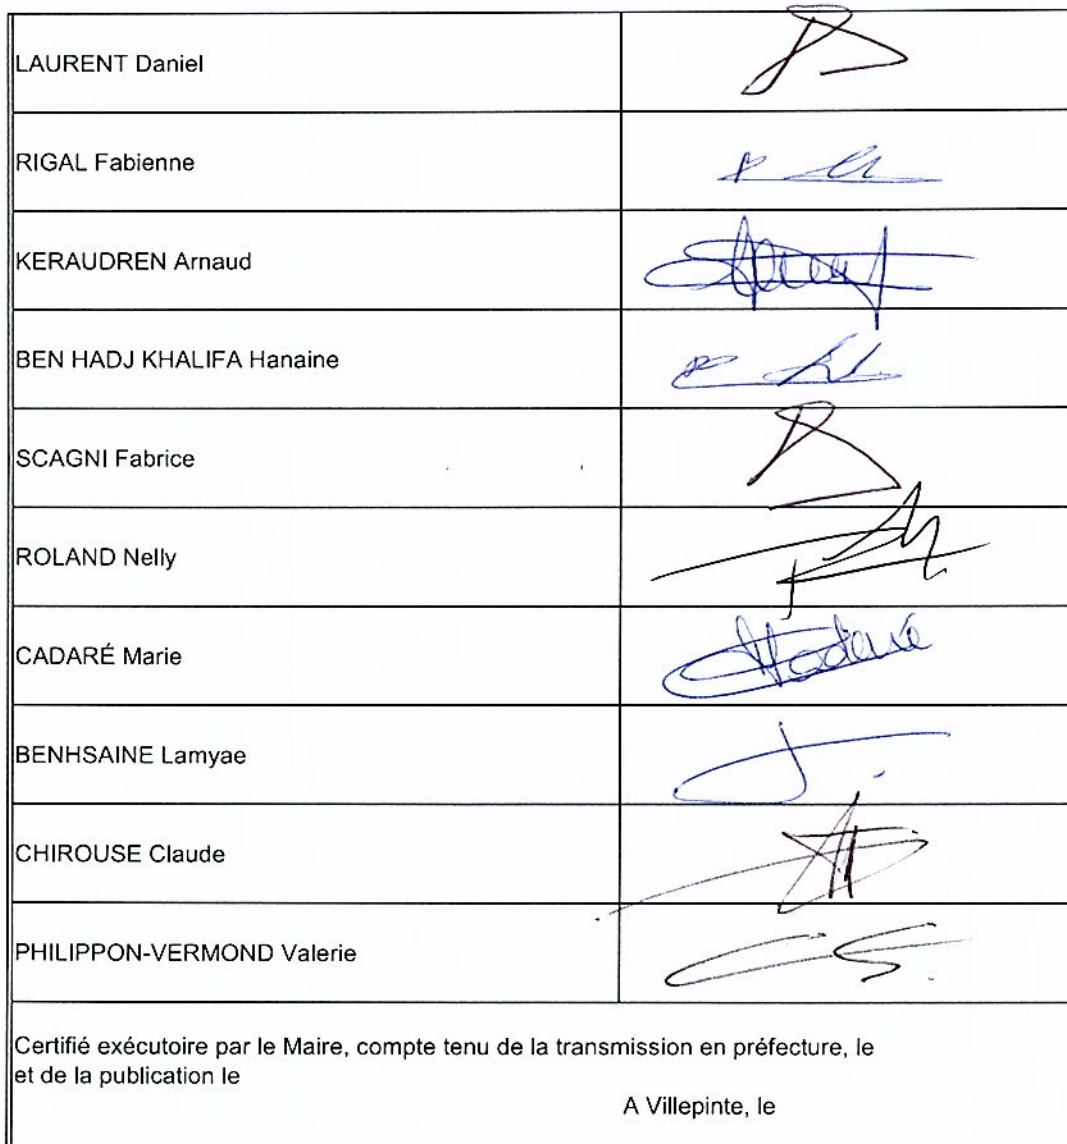 LAURENT Daniel
RIGAL Fabienne
KERAUDREN Arnaud
BEN HADJ KHALIFA Hanaine
SCAGNI Fabrice
ROLAND Nelly
CADARÉ Marie
BENHSAINE Lamyae
CHIROUSE Claude
PHILIPPON-VERMOND Valerie
Certifié exécutoire par le Maire, compte tenu de la transmission en préfecture, le
et de la publication le
A Villepinte, le